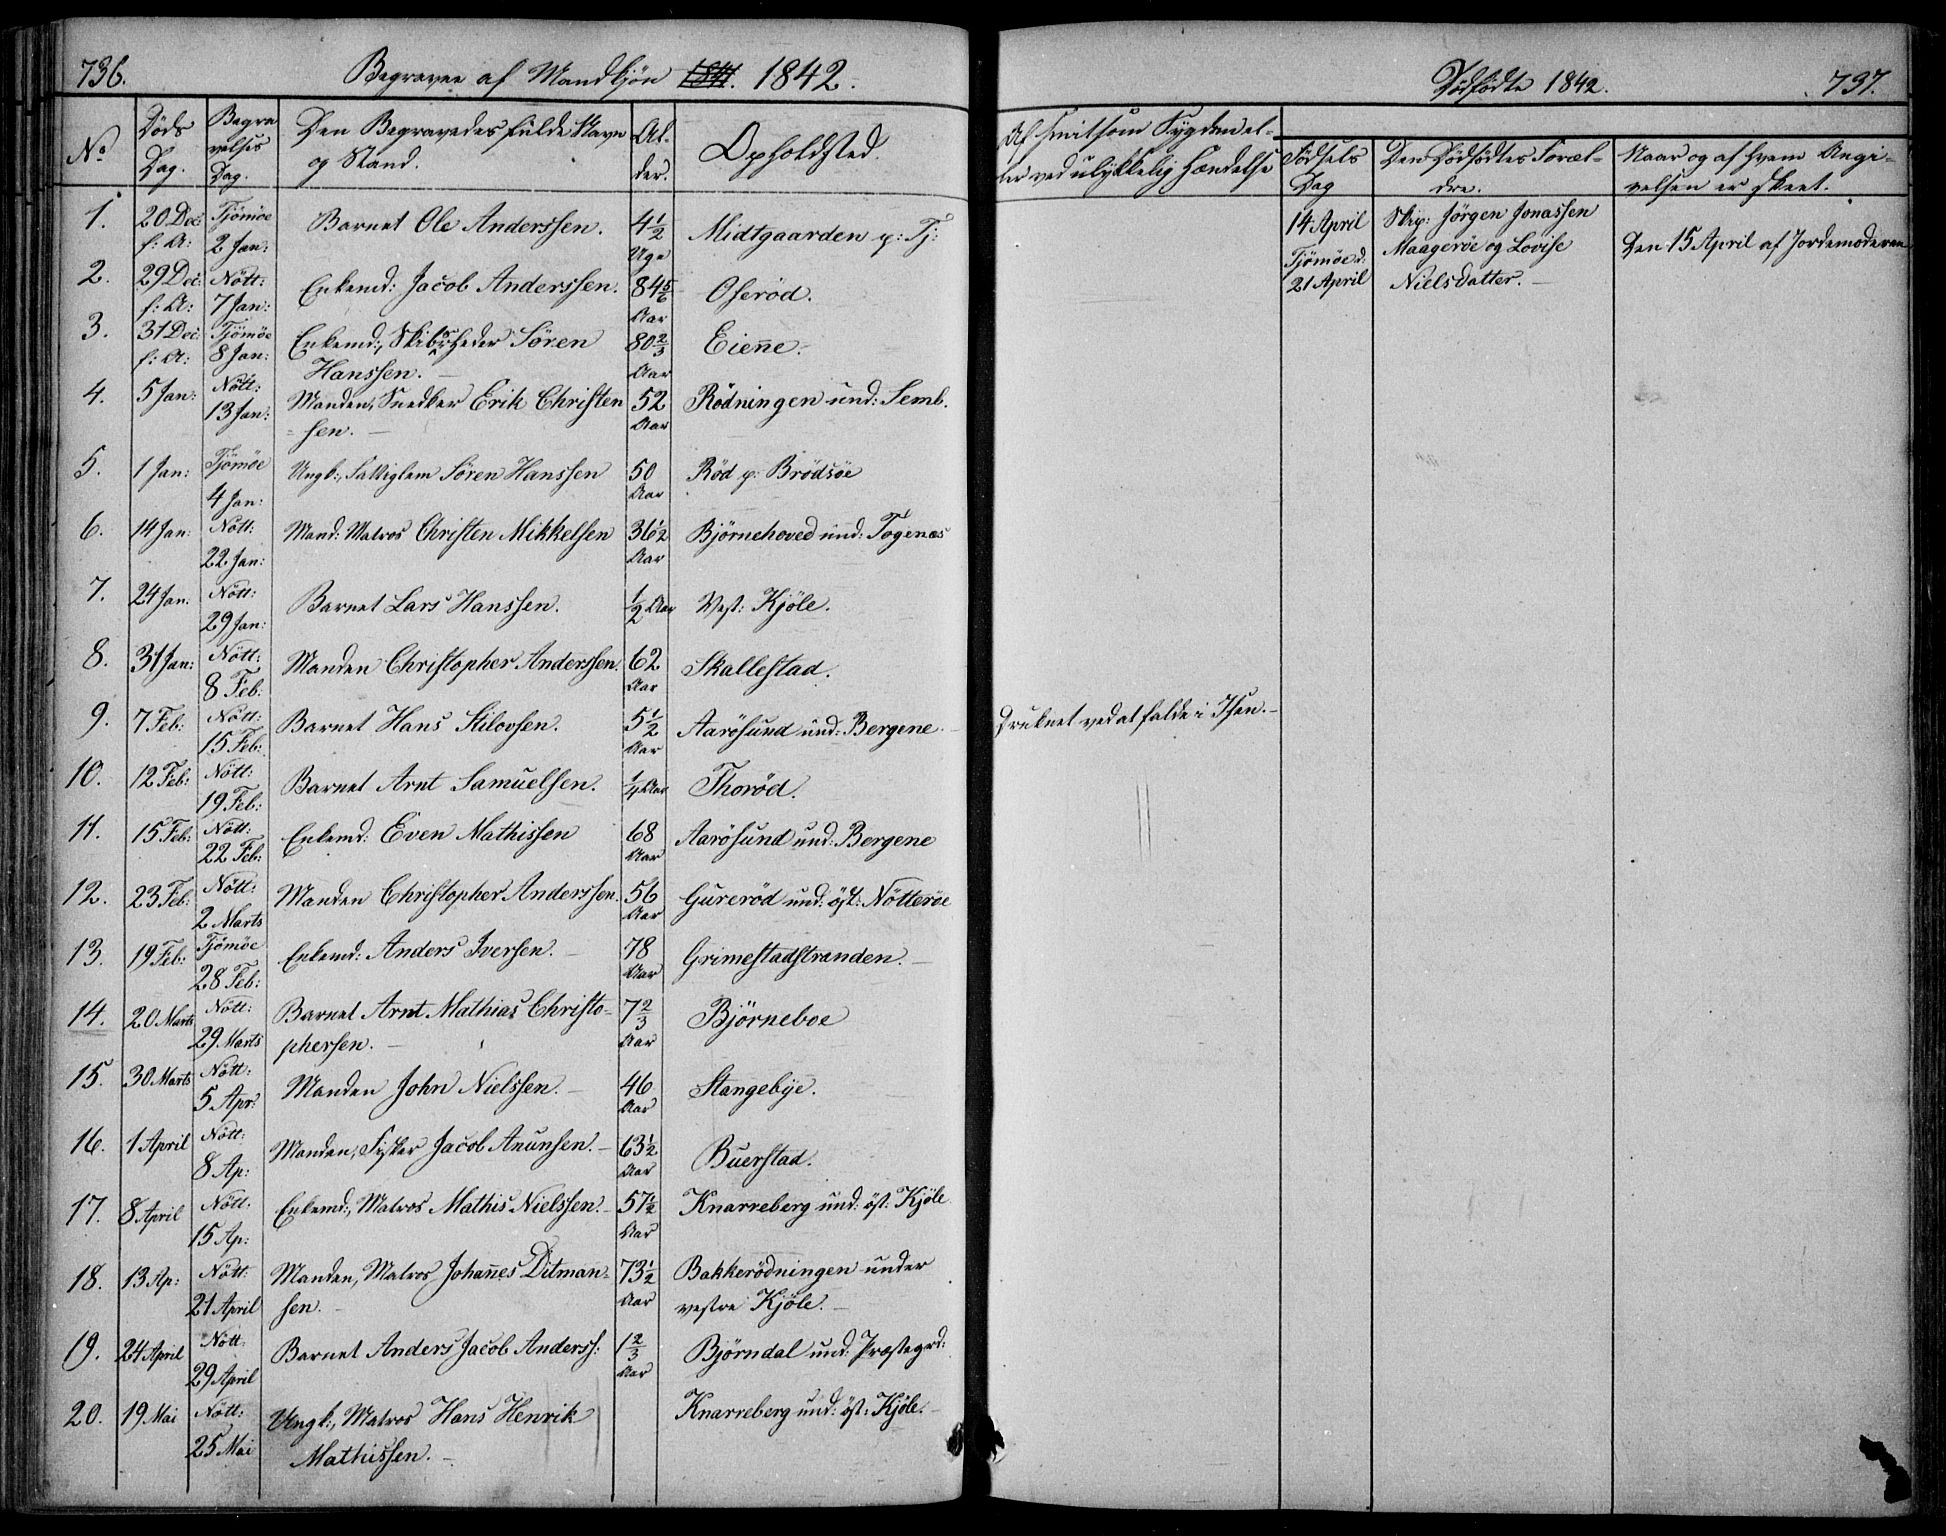 736.
Begravne af Mandkjön 1841. 1842.
No
Døds Dag.
Begravelses Dag.
Den Begravedes fulde Navn og Stand.
Alder.
Opholdsted.
1. 20 Dec: f: A: Tjömöe 2 Jan: Barnet Ole Anderssen. 4½ Uge Midtgaarden p: Tj:
2. 29 Dec: f: A: Nött: 7 Jan: Enkemd: Jacob Anderssen. 84 5/6 Aar Oseröd.
3. 31 Dec: f: A: Tjömöe 8 Jan: Enkemd:, Skibsrheder Sören Hanssen. 80 2/3 Aar Eiene.
4. 5 Jan: Nött: 13 Jan: Manden, Snedker Erik Christen=sen. 52 Aar Rödningen und: Semb.
5. 1 Jan: Tjömöe 4 Jan: Ungk:, Sören Hanssen 50 Aar Röd p: Brödsöe
6. 14 Jan: Nött: 22 Jan: Mand: Matros Christen Mikkelsen 36½ Aar Björnehoved und: Togenæs
7. 24 Jan: Nött: 29 Jan: Barnet Lars Hanssen. ½ Aar Vest: Kjöle.
8. 31 Jan: Nött: 8 Feb: Manden Christopher Anderssen. 62 Aar Skallestad.
9. 7 Feb: Nött: 15 Feb: Barnet Hans Stilovsen. 5½ Aar Aarösund und: Bergene.
10. 12 Feb: Nött: 19 Feb: Barnet Arnt Samuelsen. ¼ Aar Thoröd.
11. 15 Feb: Nött: 22 Feb: Enkemd: Even Mathissen 68 Aar Aarösund und: Bergene
12. 23 Feb: Nött: 2 Marts Manden Christopher Anderssen. 56 Aar Gureröd und: öst: Nötteröe
13. 19 Feb: Tjömöe 28 Feb: Enkemd: Anders Iversen. 78 Aar Grimestadstranden.
14. 20 Marts Nött: 29 Marts Barnet Arnt Mathias Christo=phersen. 7 2/3 Aar Björneboe
15. 30 Marts Nött: 5 Apr: Manden John Nielssen. 46 Aar Stangebye.
16. 1 April Nött: 8 Ap: Manden, Fisker Jacob Anunsen. 63½ Aar Buerstad.
17. 8 April Nött. 15 Ap: Enkemd:, Matros Mathis Nielssen. 57½ Aar Knarreberg und: öst: Kjöle
18. 13 Ap: Nött: 21 April Manden, Matros Johanes Ditman=sen. 73½ Aar Bakkerödningen under vestre Kjöle.
19. 24 April Nött. 29 April Barnet Anders Jacob Anderss: 1 2/3 Aar Björndal und: Præstegrd:
20. 19 Mai Nött: 25 Mai Ungk:, Matros Hans Henrik Mathissen. Knarreberg und: öst: Kjöle.
Dödfödte 1842.
737.
Af smitsom Sygdom el=ler ved ulykkelig Hændelse
Födsels Dag
Den Dödfödtes Foræl=dre.
Naar og af hvem Angi=velsen er skeet.
14 April Tjömöe d: 21 April
Skip: Jörgen Jonassen Maageröe og Lovise Nielsdatter.
Den 15 April af Jordemoderen
Druknet ved at falde i Isen.